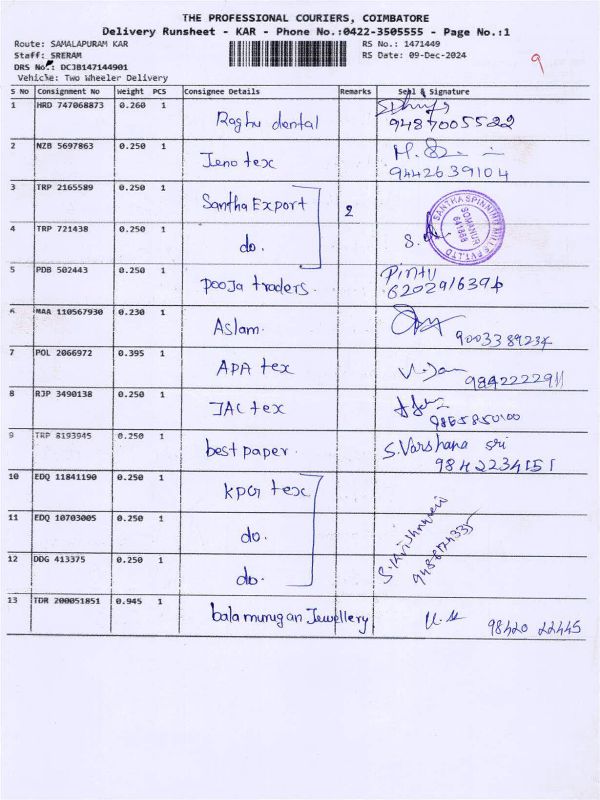 THE PROFESSIONAL COURIERS, COIMBATORE
Delivery Runsheet - KAR - Phone No.:0422-3505555 - Page No.:1
Route: SAMALAPURAM KAR
Staff: SRERAM
DRS No.: DCJB147144901
Vehicle: Two Wheeler Delivery
RS No.: 1471449
RS Date: 09-Dec-2024
9
S No Consignment No Weight PCS Consignee Details Remarks Seal & Signature
1 HRD 747068873 0.260 1 Raghu dental 9487005522
2 NZB 5697863 0.250 1 Jeno tex 9442639104
3 TRP 2165589 0.250 1 Santha Export 2
SANTHA SPINNING MILLS PVT.LTD
SOMANUR
641668
4 TRP 721438 0.250 1 do.
5 PDB 502443 0.250 1 pooja traders. Pintu
6202916394
6 MAA 110567930 0.230 1 Aslam. 9003389234
7 POL 2066972 0.395 1 APA tex 9842222911
8 RJP 3490138 0.250 1 JAC tex 9865850100
9 TRP 8193945 0.250 1 best paper. S.Varshana sri
9842234151
10 EDQ 11841190 0.250 1 KPG tex
11 EDQ 10703005 0.250 1 do.
12 DDG 413375 0.250 1 do.
13 TDR 200051851 0.945 1 balamurugan Jewellery 98420 22445